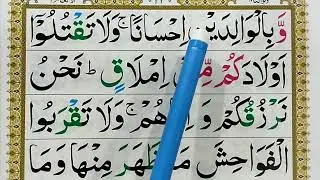 وَّ بِالْوَالِدَيْنِ اِحْسَانًا ۚ وَلَا تَقْتُلُوْٓا
اَوْلَادَكُمْ مِّنْ اِمْلَاقٍ ؕ نَحْنُ
نَرْزُقُكُمْ وَ اِيَّاهُمْ ۚ وَلَا تَقْرَبُوا
الْفَوَاحِشَ مَا ظَهَرَ مِنْهَا وَمَا